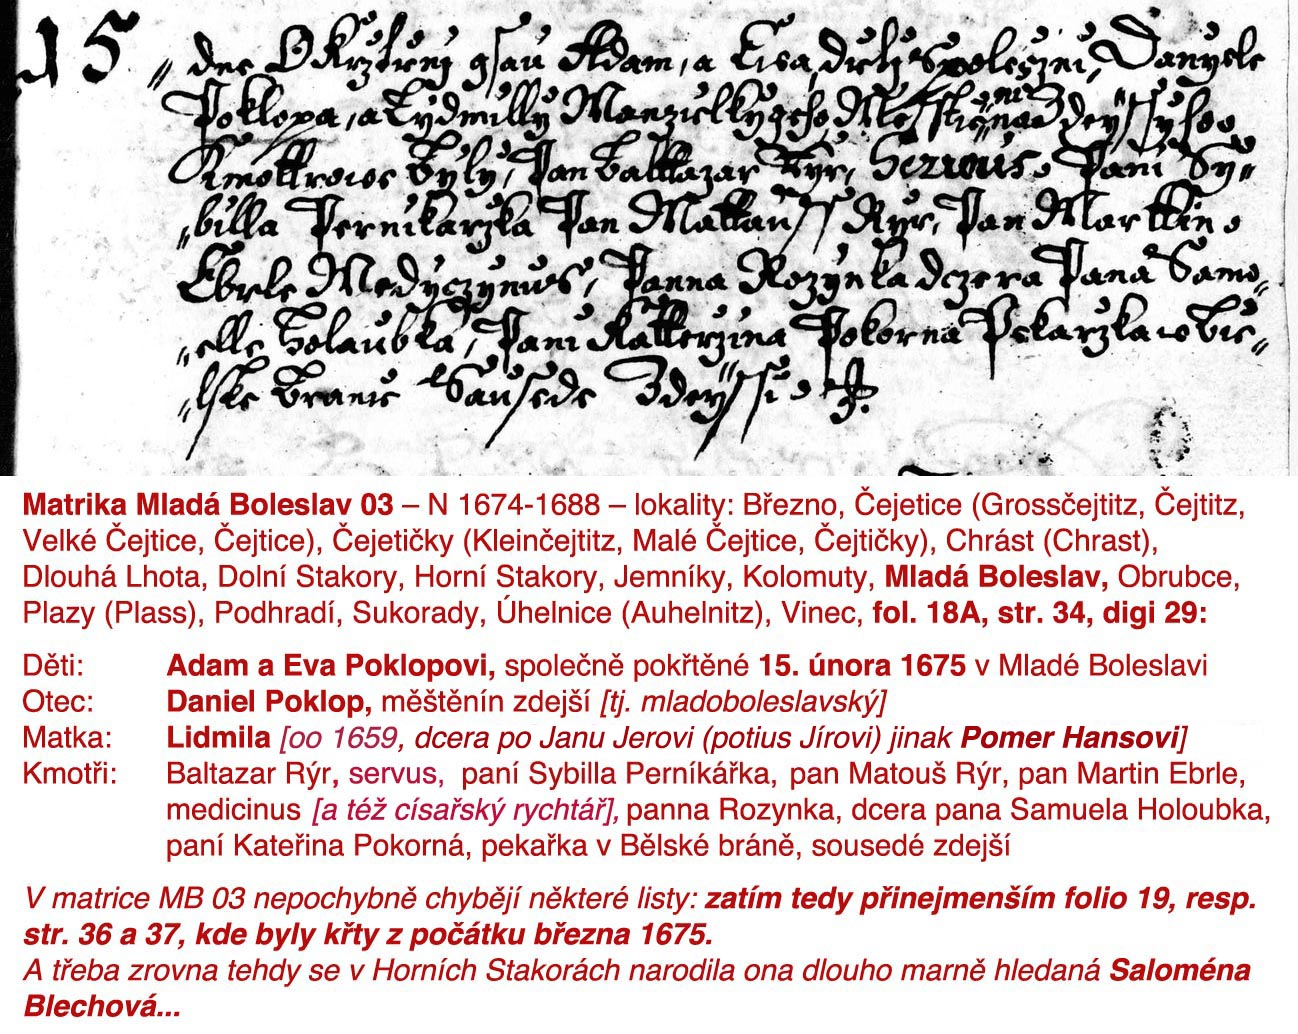 15 „ dne Okrztieni gsau Adam, a Eva, ditky Spoleczni, Danyele
Poklopa, a Lydmilly Manzielky geho, Messtienina Zdeyssyho.
Kmottrowe Byly, Pan Baltazar Ryr, Servus. Pani Sy„
„billa Pernikarzka Pan Mattauss Ryr, Pan Marttin
Ebrle Medyczynus, Panna Rozynka dczera Pana Samo„
„elle Holaubka, Pani Katterzina Pokorna Pekarzka w Bie„
„lske Branie Sausede Zdeyssi.
Matrika Mladá Boleslav 03 – N 1674-1688 – lokality: Březno, Čejetice (Grossčejtitz, Čejtitz,
Velké Čejtice, Čejtice), Čejetičky (Kleinčejtitz, Malé Čejtice, Čejtičky), Chrást (Chrast),
Dlouhá Lhota, Dolní Stakory, Horní Stakory, Jemníky, Kolomuty, Mladá Boleslav, Obrubce,
Plazy (Plass), Podhradí, Sukorady, Úhelnice (Auhelnitz), Vinec, fol. 18A, str. 34, digi 29:
Děti: Adam a Eva Poklopovi, společně pokřtěné 15. února 1675 v Mladé Boleslavi
Otec: Daniel Poklop, měštěnín zdejší [tj. mladoboleslavský]
Matka: Lidmila [oo 1659, dcera po Janu Jerovi (potius Jírovi) jinak Pomer Hansovi]
Kmotři: Baltazar Rýr, servus, paní Sybilla Perníkářka, pan Matouš Rýr, pan Martin Ebrle,
medicinus [a též císařský rychtář], panna Rozynka, dcera pana Samuela Holoubka,
paní Kateřina Pokorná, pekařka v Bělské bráně, sousedé zdejší
V matrice MB 03 nepochybně chybějí některé listy: zatím tedy přinejmenším folio 19, resp.
str. 36 a 37, kde byly křty z počátku března 1675.
A třeba zrovna tehdy se v Horních Stakorách narodila ona dlouho marně hledaná Saloména
Blechová...